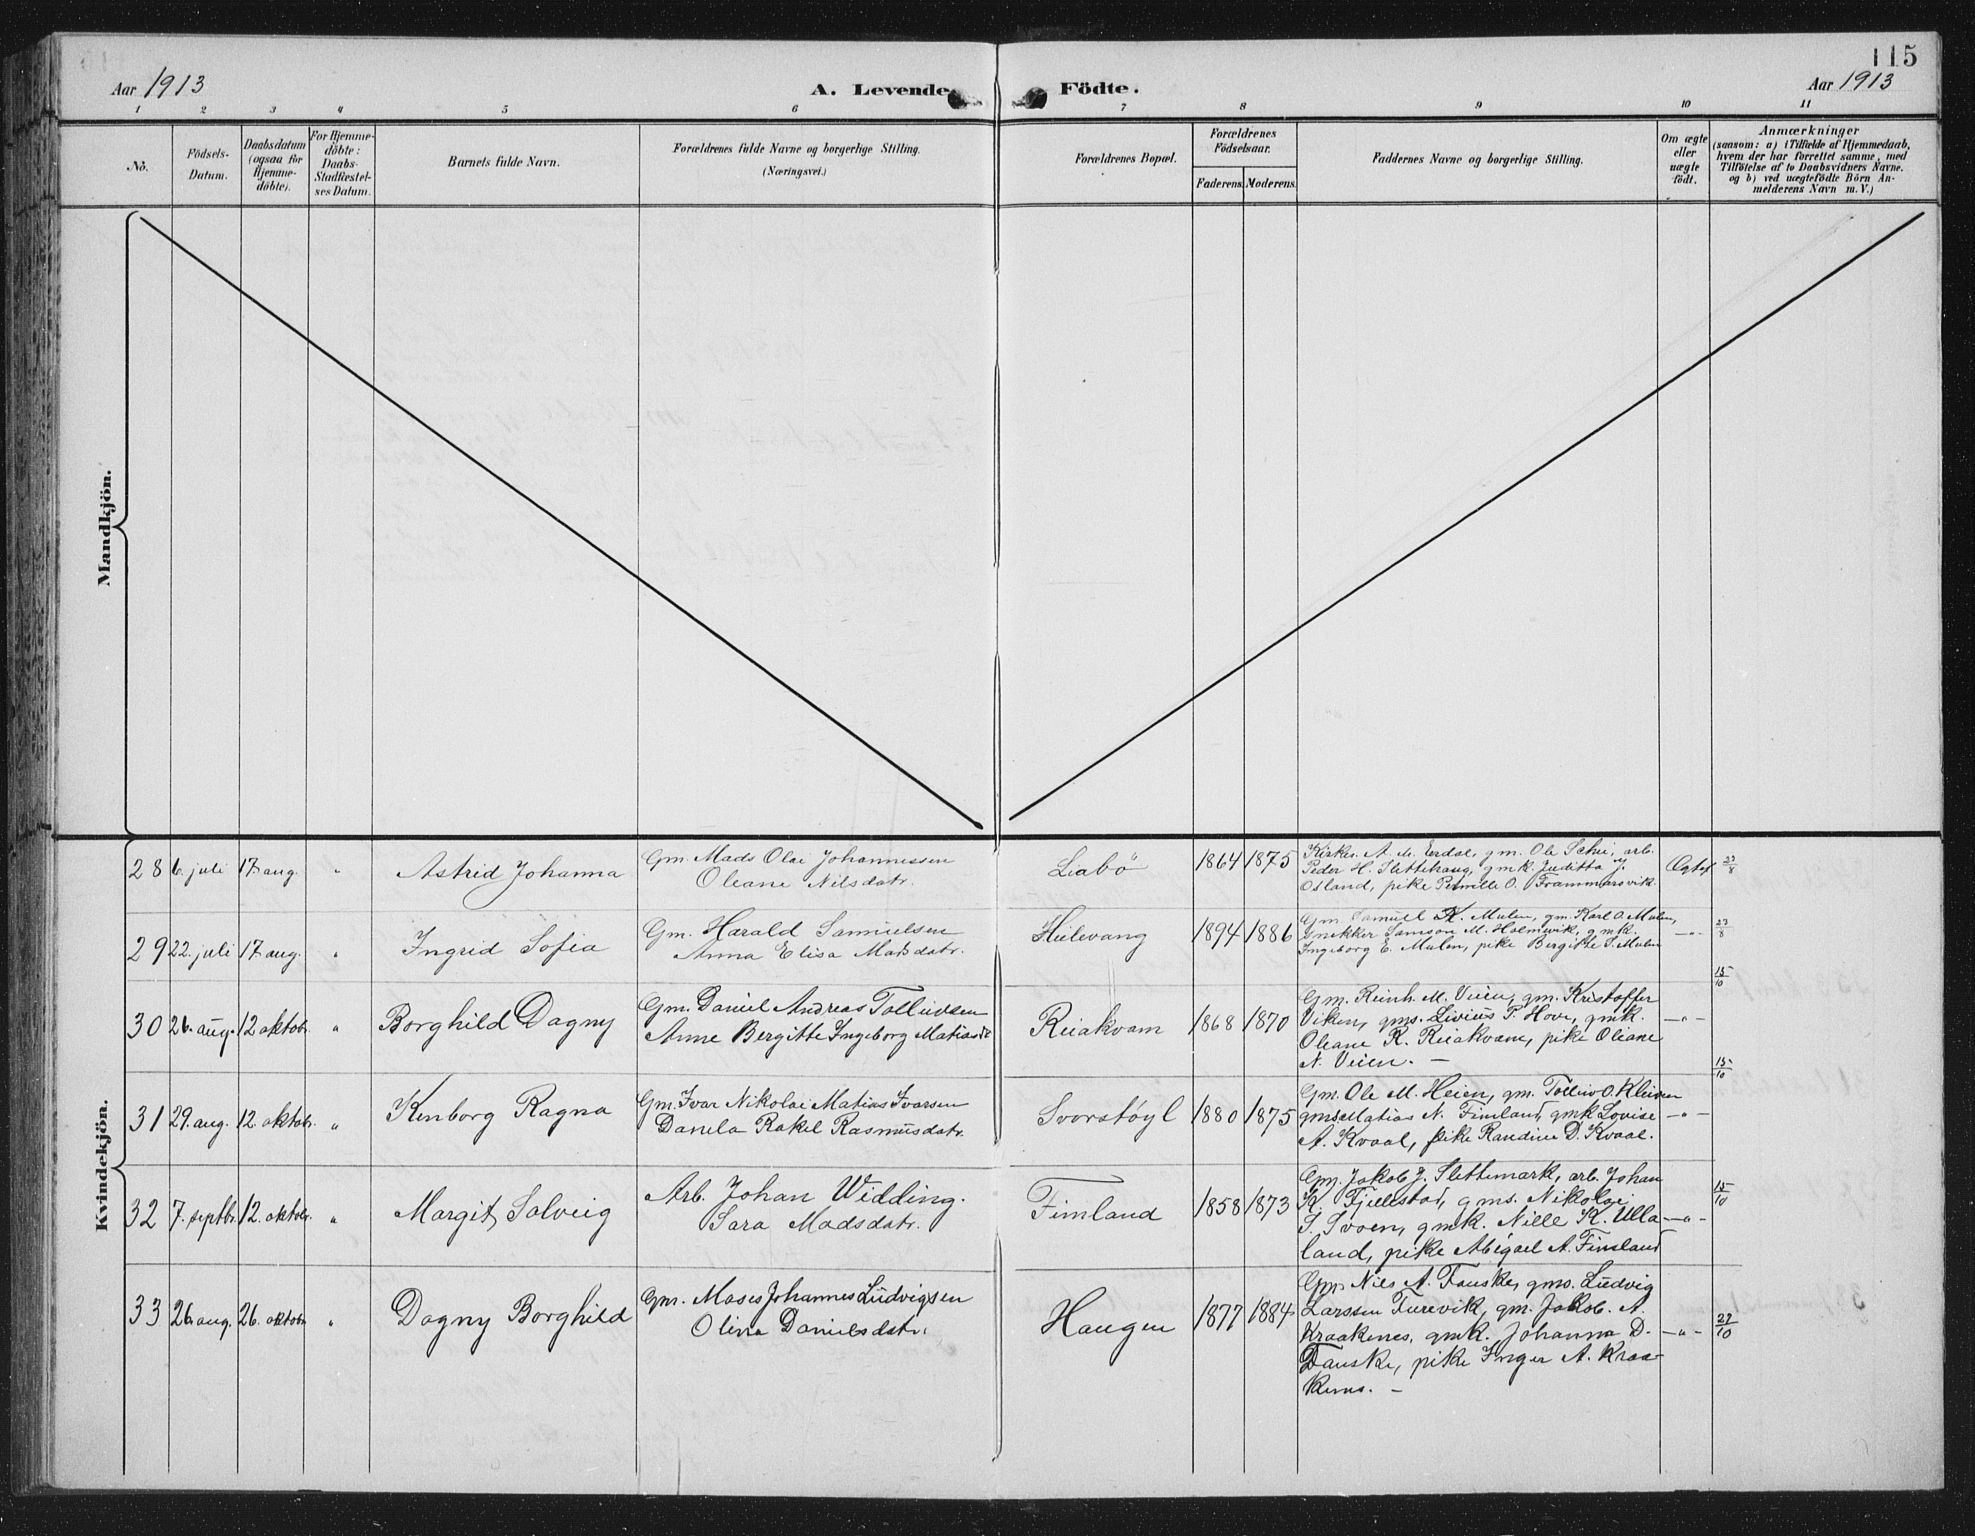 115
Aar 1913
A. Levende Födte.
Aar 1913
1 2 3 4 5 6 7 8 9 10 11
No.
Födsels-Datum.
Daabsdatum (ogsaa for Hjemme-döbte).
For Hjemme-döbte: Daabs-Stadfæstel-ses Datum.
Barnets fulde Navn.
Forældrenes fulde Navne og borgerlige Stilling.
(Næringsvei.)
Forældrenes Bopæl.
Forældrenes Födselsaar.
Faderens. Moderens.
Faddernes Navne og borgerlige Stilling.
Om ægte eller uægte födt.
Anmærkninger
(saasom: a) i Tilfælde af Hjemmedaab,
hvem der har forrettet samme, med
Tilföielse af to Daabsvidners Navne.
og b) ved uægtefödte Börn An-
melderens Navn m. V.)
Mandkjön.
Kvindekjön.
28 6. juli 17. aug. " Astrid Johanna
Gm. Mads Olai Johannessen
Oleane Nilsdatr.
Liabö 1864 1875
Kirkes. A. M. Eerdal, gm. Ole Schei, arb.
Peder H. Slettehaug, gmk. Juditta J.
Osland, pike Pernille O. Frammarsvik.
Ægtef. 23/8
29 22. juli 17. aug. " Ingrid Sofia
Gm. Harald Samuelsen
Anna Elisa Madsdatr.
Hielevang 1894 1886
Gm. Samuel K. Mulen, gm. Karl O. Mulen,
snekker Samson M. Holmevik, gmk.
Ingeborg E. Mulen, pike Bergitte S. Mulen
—"- 23/8
30 26. aug. 12 oktobr. " Borghild Dagny
Gm. Daniel Andreas Tollivsen
Anne Bergitte Ingeborg Matiasdt
Reiakvam 1868 1870
Gm. Reinh. M. Veien, gm. Kristoffer
Viken, gms. Livius P. Hove, gmk.
Oleane R. Reiakvam, pike Oliane
N. Veien. —
—"- 15/10
31 29. aug. 12. oktobr. " Kinborg Ragna
Gm. Ivar Nikolai Matias Ivarsen
Danela Rakel Rasmusdatr.
Svorstöyl 1880 1875
Gm. Ole M. Heien, gm. Tolliv O. Kleiven
gms. Matias N. Fimland, gmk Lovise
A. Kvaal, pike Randine D. Kvaal.
—"- 15/10
32 7. septbr. 12. oktobr. " Margit Solveig
Arb. Johan Widding.
Sara Madsdatr.
Fimland 1858 1873
Gm. Jakob J. Slettemark, arb. Johan
K. Fjellstad, gms. Nikolai
S. Svoen, gmk. Nille K. Ulla-
land, pike Abigael A. Fimland
—"- 15/10
33 26. aug. 26. oktobr. " Dagny Borghild
Gm. Moses Johannes Ludvigsen
Olina Danielsdatr.
Haugen 1877 1884
Gm. Nils A. Fauske, gms. Ludvig
Larssen Furevik, gm. Jakob. A.
Kraakenes, gmk. Johanna D.
Fauske, pike Inger A. Kraa-
kenes. —
—"- 27/10